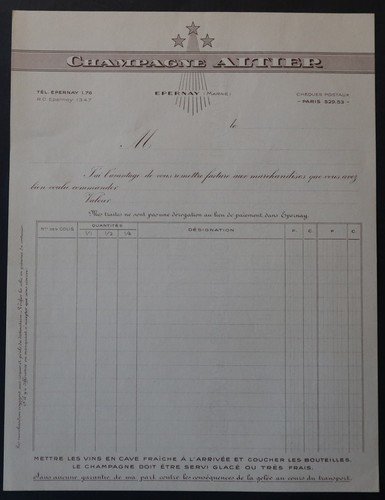 CHAMPAGNE ALTIER
TÉL. EPERNAY 1.75
R.C. Epernay 1347
EPERNAY (MARNE)
CHÈQUES POSTAUX
- PARIS 520.53 -
le
M.
J'ai l'avantage de vous remettre facture aux marchandises que vous avez
bien voulu commander
Valeur
Mes traites ne sont pas une dérogation au lieu de paiement dans Epernay.
Nos DES COLIS
QUANTITÉS
1/1 1/2 1/4
DÉSIGNATION
F. C. F. C.
METTRE LES VINS EN CAVE FRAÎCHE À L'ARRIVÉE ET COUCHER LES BOUTEILLES.
LE CHAMPAGNE DOIT ÊTRE SERVI GLACÉ OU TRÈS FRAIS.
Sans aucune garantie de ma part contre les conséquences de la gelée au cours du transport.